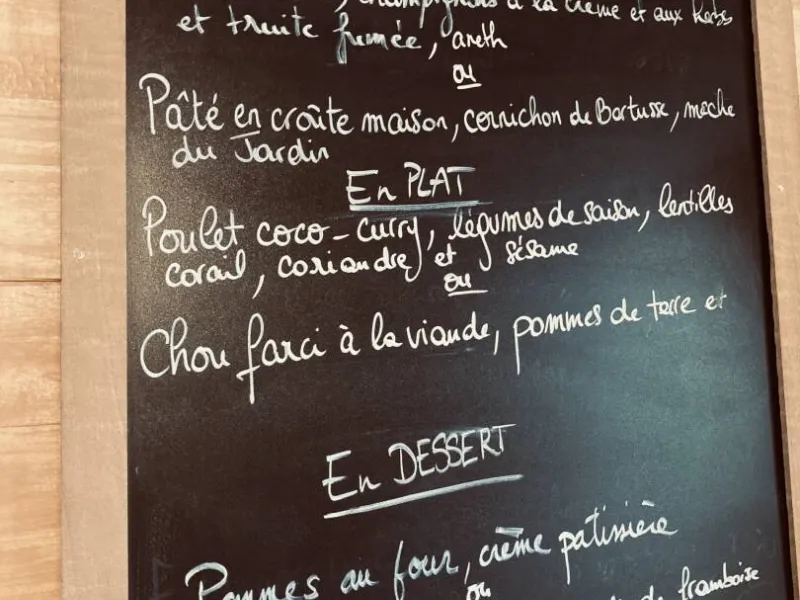 champignons à la crème et aux herbes
et truite fumée, aneth
ou
Pâté en croûte maison, cornichon de Bortusse, mache
du Jardin
En PLAT
Poulet coco-curry, légumes de saison, lentilles
corail, coriandre et sésame
ou
Chou farci à la viande, pommes de terre et
En DESSERT
Pommes au four, crème patissière
ou
de framboise